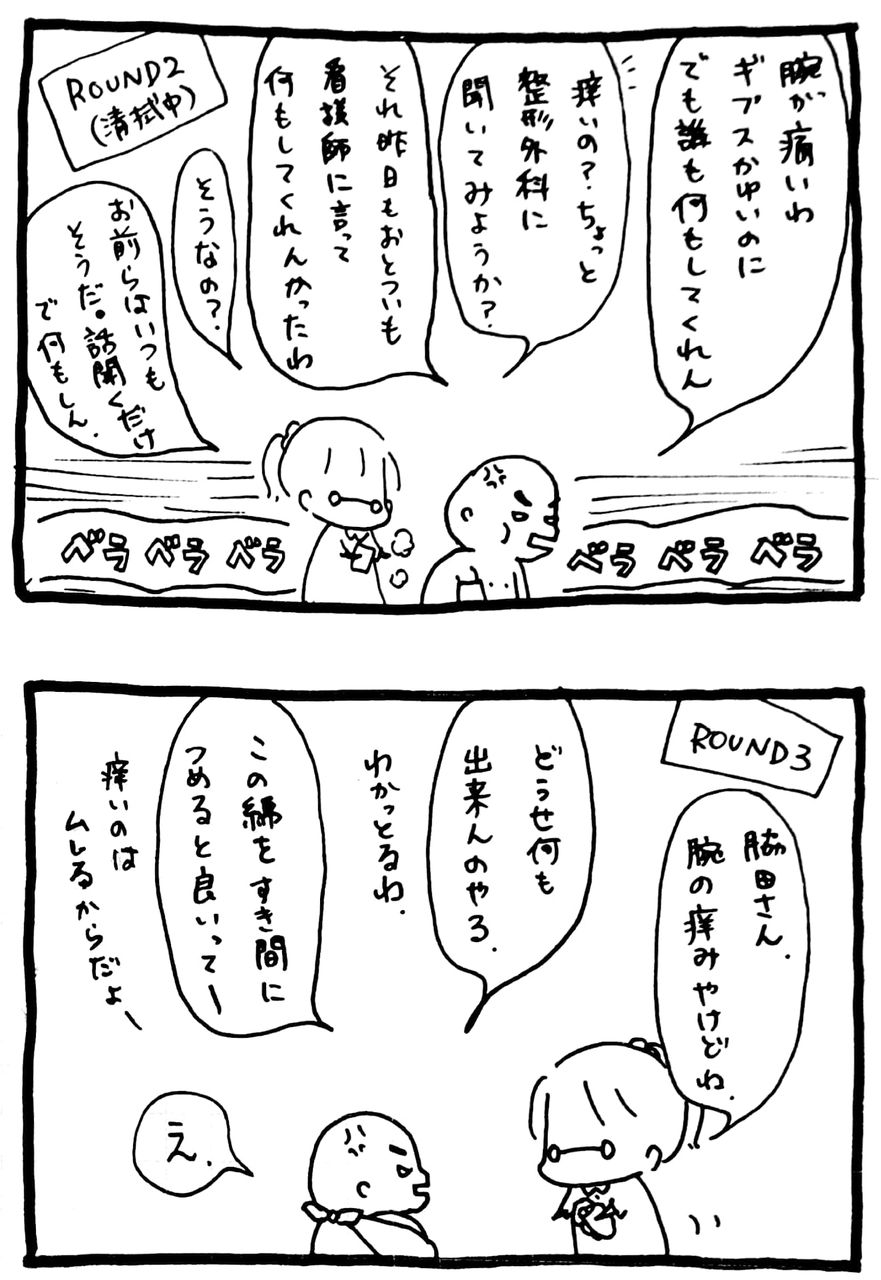 ROUND2
(清拭中)
腕が痛いわ
ギプスかゆいのに
でも誰も何もしてくれん
痒いの？ちょっと
整形外科に
聞いてみようか？
それ昨日もおとついも
看護師に言って
何もしてくれんかったわ
そうなの？
お前らはいつも
そうだ。話聞くだけ
で何もしん.
ベラ ベラ ベラ
ベラ ベラ ベラ
ROUND3
脇田さん.
腕の痒みやけどね.
どうせ何も
出来んのやろ.
わかっとるわ.
この綿をすき間に
つめると良いってー
痒いのは
ムレるからだよー
え.